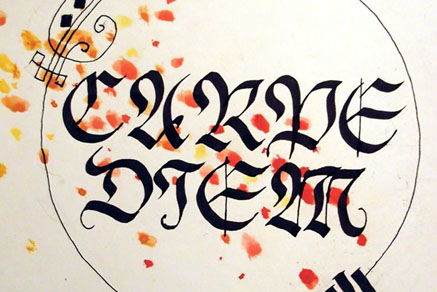 CARPE
DIEM